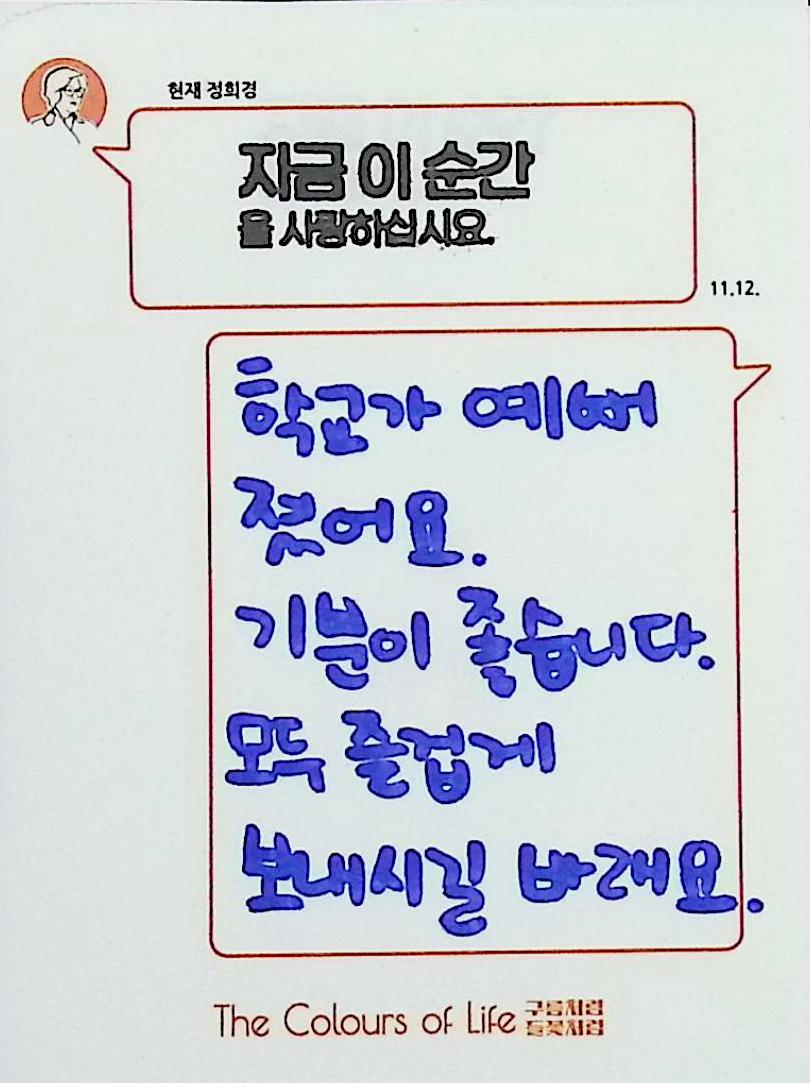 현재 정희경
지금 이 순간
을 사랑하십시요.
11.12.
학교가 예뻐
졌어요.
기분이 좋습니다.
모두 즐겁게
보내시길 바래요.
The Colours of Life 구름처럼
들꽃처럼